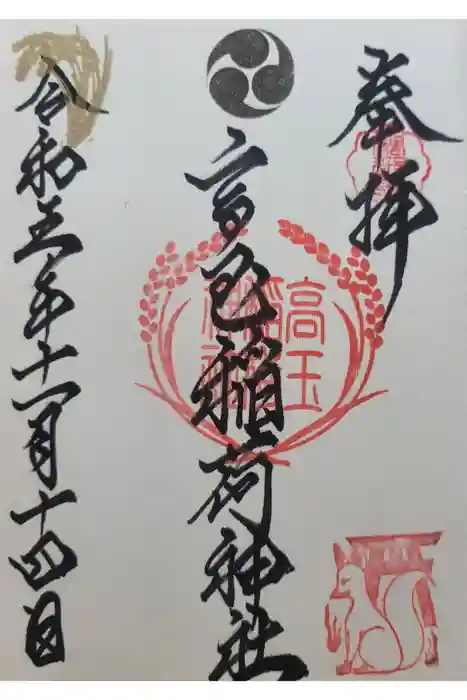 奉拝
高玉稲荷神社
高玉稲荷神社
令和五年十一月十四日